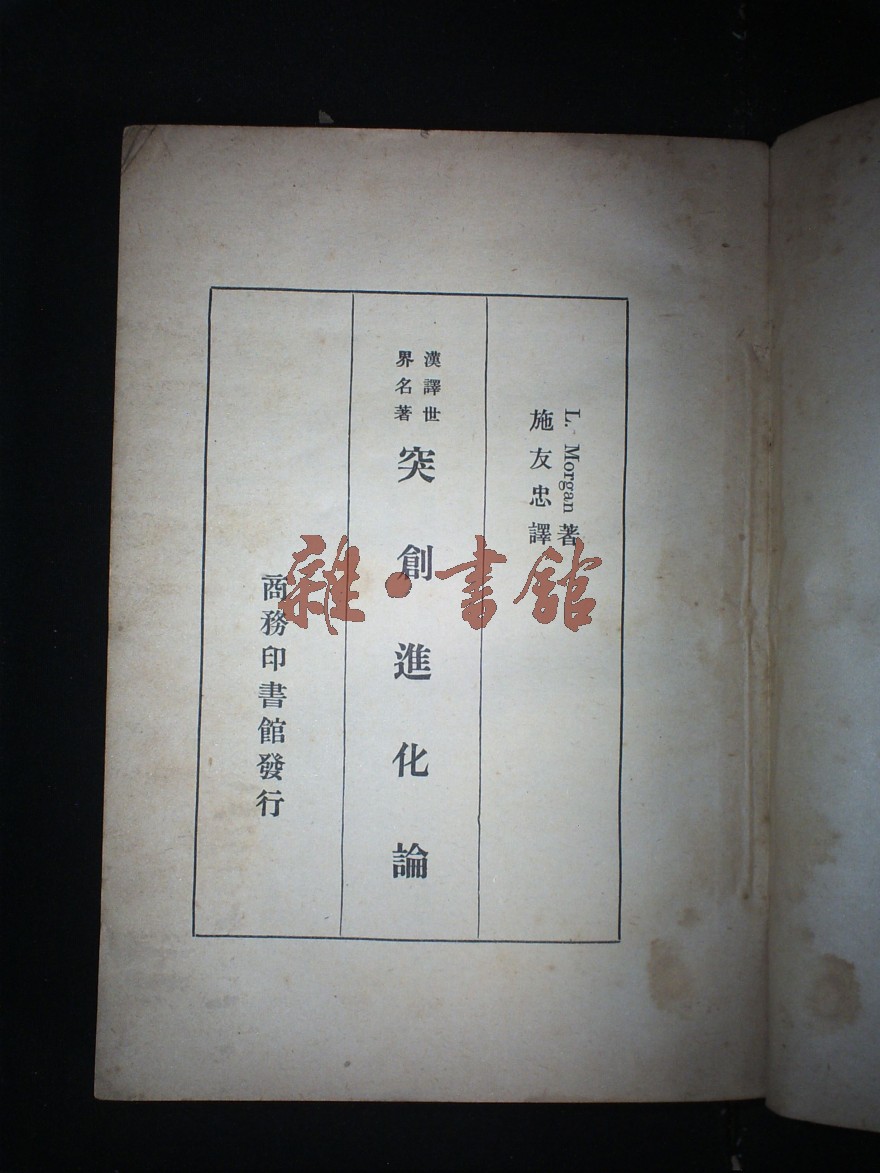 L. Morgan著
施友忠譯
漢譯世
界名著
突創進化論
商務印書館發行
雜·書館